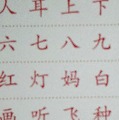 人耳上下
六七八九
红灯妈白
画听飞种